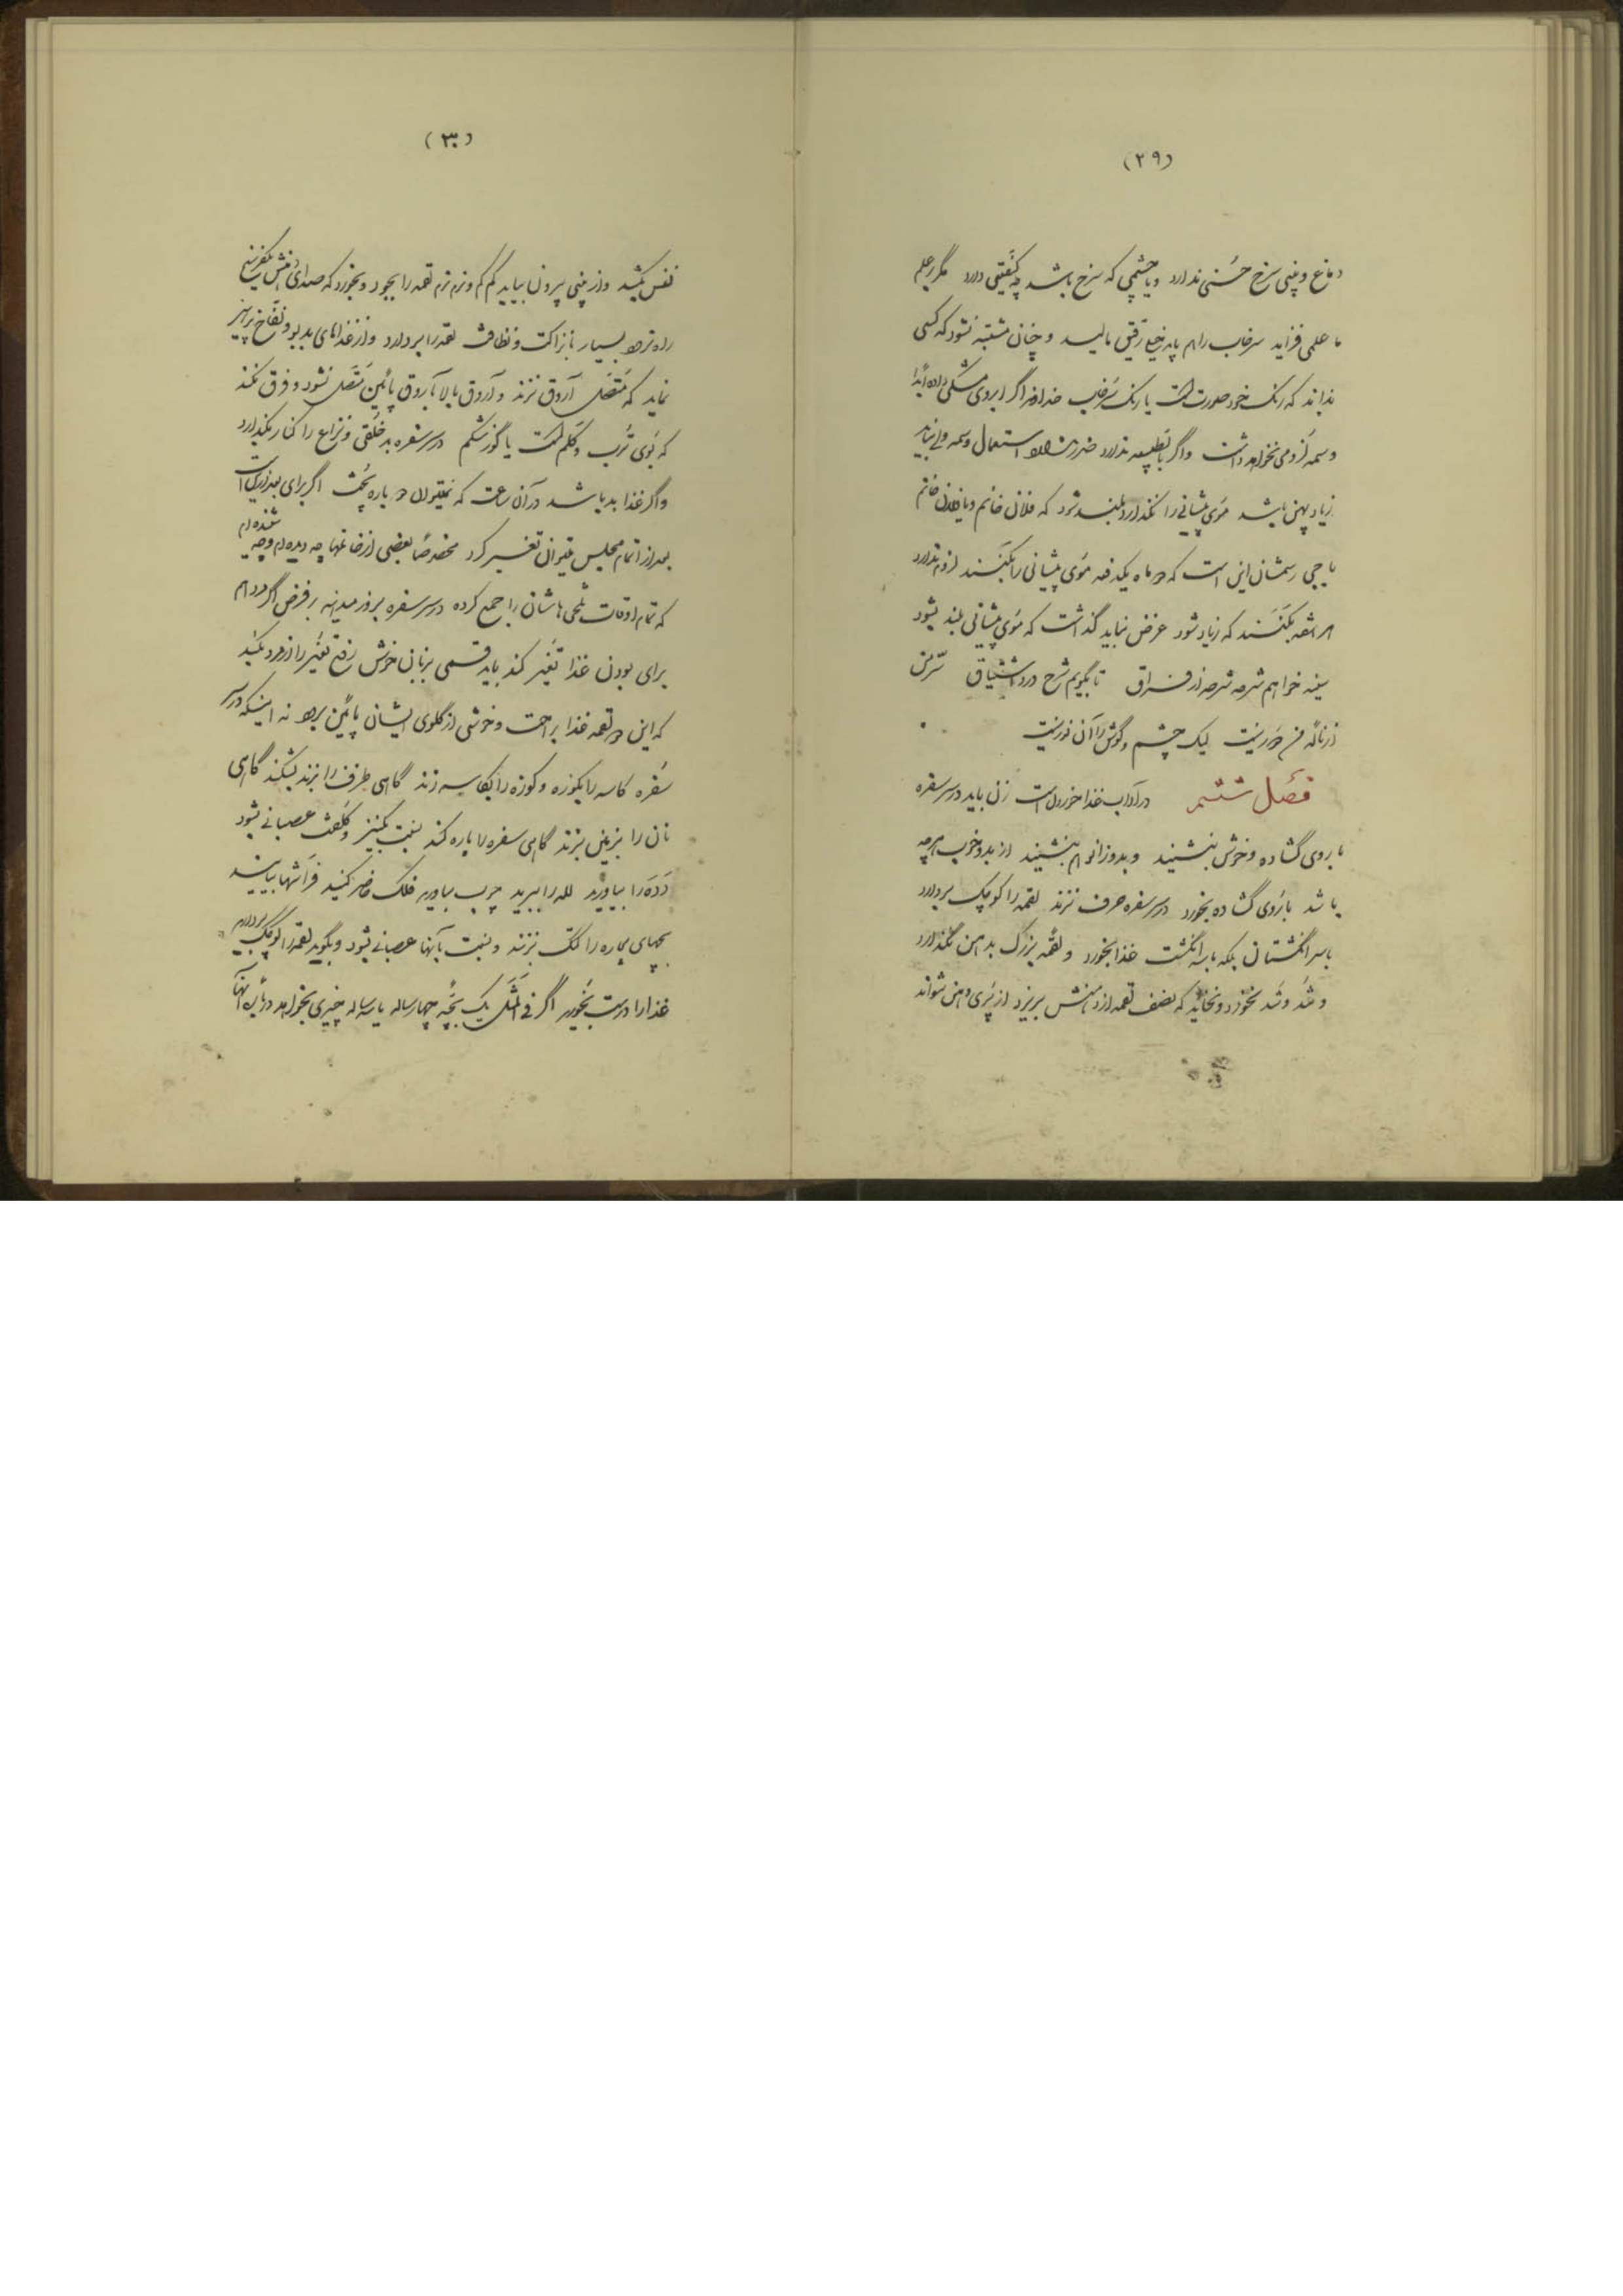 (۲۹)
دماغ و بینی سرخ حُسنی ندارد و یا چشمی که سرخ باشد چه کیفیتی دارد مگر علم
ما علمی فزاید سرخاب را هم باید خیلی رقیق مالید و چنان مشتبه نشود که کسی
نداند که رنگ خود صورت است یا رنگ سرخاب خداوند اگر ابروی مشکی داده ابدا
وسمه لزومی نخواهد داشت و اگر بالطبیعه ندارد ضرورت استعمال وسمه
زیاد پهن باشد موی پیشانی را نگذارد بلند شود که فلان خانم و یا فلان خانم
باجی رسمشان این است که در ماه یکدفعه موی پیشانی را بکنند لزوم ندارد
هر دفعه بکنند که زیاد شود غرض نباید گذاشت که موی پیشانی بلند بشود
سینه خواهم شرحه شرحه از فراق تا بگویم شرح درد اشتیاق سّر من
از ناله من دور نیست لیک چشم و گوش را آن نور نیست
فصل ششم در آداب غذا خوردن است زن باید در سر سفره
با روی گشاده و خوش بنشیند و بدوزانو هم بنشیند از بد و خوب هرچه
باشد با روی گشاده بخورد در سر سفره حرف نزند لقمه را کوچک بردارد
با سر انگشتان بلکه با سه انگشت غذا بخورد و لقمه بزرگ بدهن نگذارد
و تند و تند نخورد و نخاید که نصف لقمه از دهنش بریزد از پری دهنش نتواند
(۳۰)
نفس بکشد و از بینی بیرون بیاید کم کم و نرم نرم لقمه را بجود و بخورد که صدای دهنش یکفرسخ
راه نرود بسیار با نزاکت و نظافت لقمه را بردارد و از غذاهای بدبو و نفاخ پرهیز
نماید که متصل آروق نزند و آروق بالا با آروق پائین متصل نشود و فرق نکند
که بوی ترب و کلم است یا گوز شکم در سر سفره بد خلقی و نزاع را کنار بگذارد
و اگر غذا بد باشد در آن ساعت که نمیتوان دوباره پخت اگر برای بعد از این است
بعد از اتمام مجلس میتوان تغیر کرد مخصوصا بعضی از خانمها چه دیده‌ام و چه شنیده‌ام
که تمام اوقات تلخی هاشان را جمع کرده در سر سفره بروز میدهند بر فرض اگر مرد هم
برای بودن غذا تغیر کند باید قسمی بزبان خوش رفع تغیر را از مرد بکند
که این دو لقمه غذا براحت و خوشی از گلوی ایشان پائین برود نه اینکه در سر
سفره کاسه را بکوزه و کوزه را بکاسه زند گاهی ظرف را بزند بشکند گاهی
نان را بزمین بزند گاهی سفره را پاره کند نسبت بکنیز و کلفت عصبانی بشود
دَدَه را بیاورید لله را ببرید چوب بیاورید فلک حاضر کنید فراشها بیایند
بچهای بیچاره را کتک بزنند و نسبت بآنها عصبانی بشود و بگوید لقمه را کوچک بردارید
غذا را درست بخورید اگر فی المثل یک بچه چهار ساله یا سه ساله چیزی بخواهد